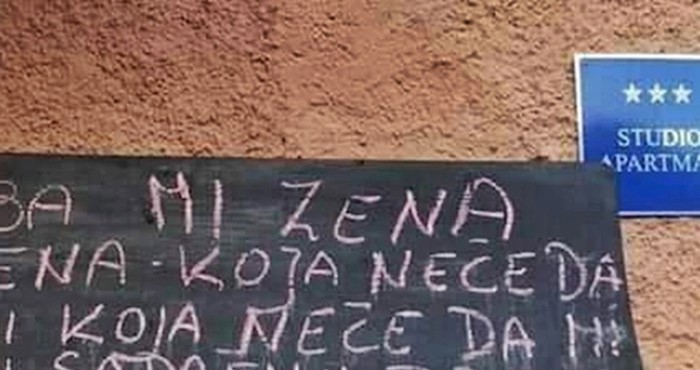 ★★★
STUDIO
APARTMA
BA MI ZENA
ENA-KOJA NEĆE DA
I KOJA NEĆE DA MI